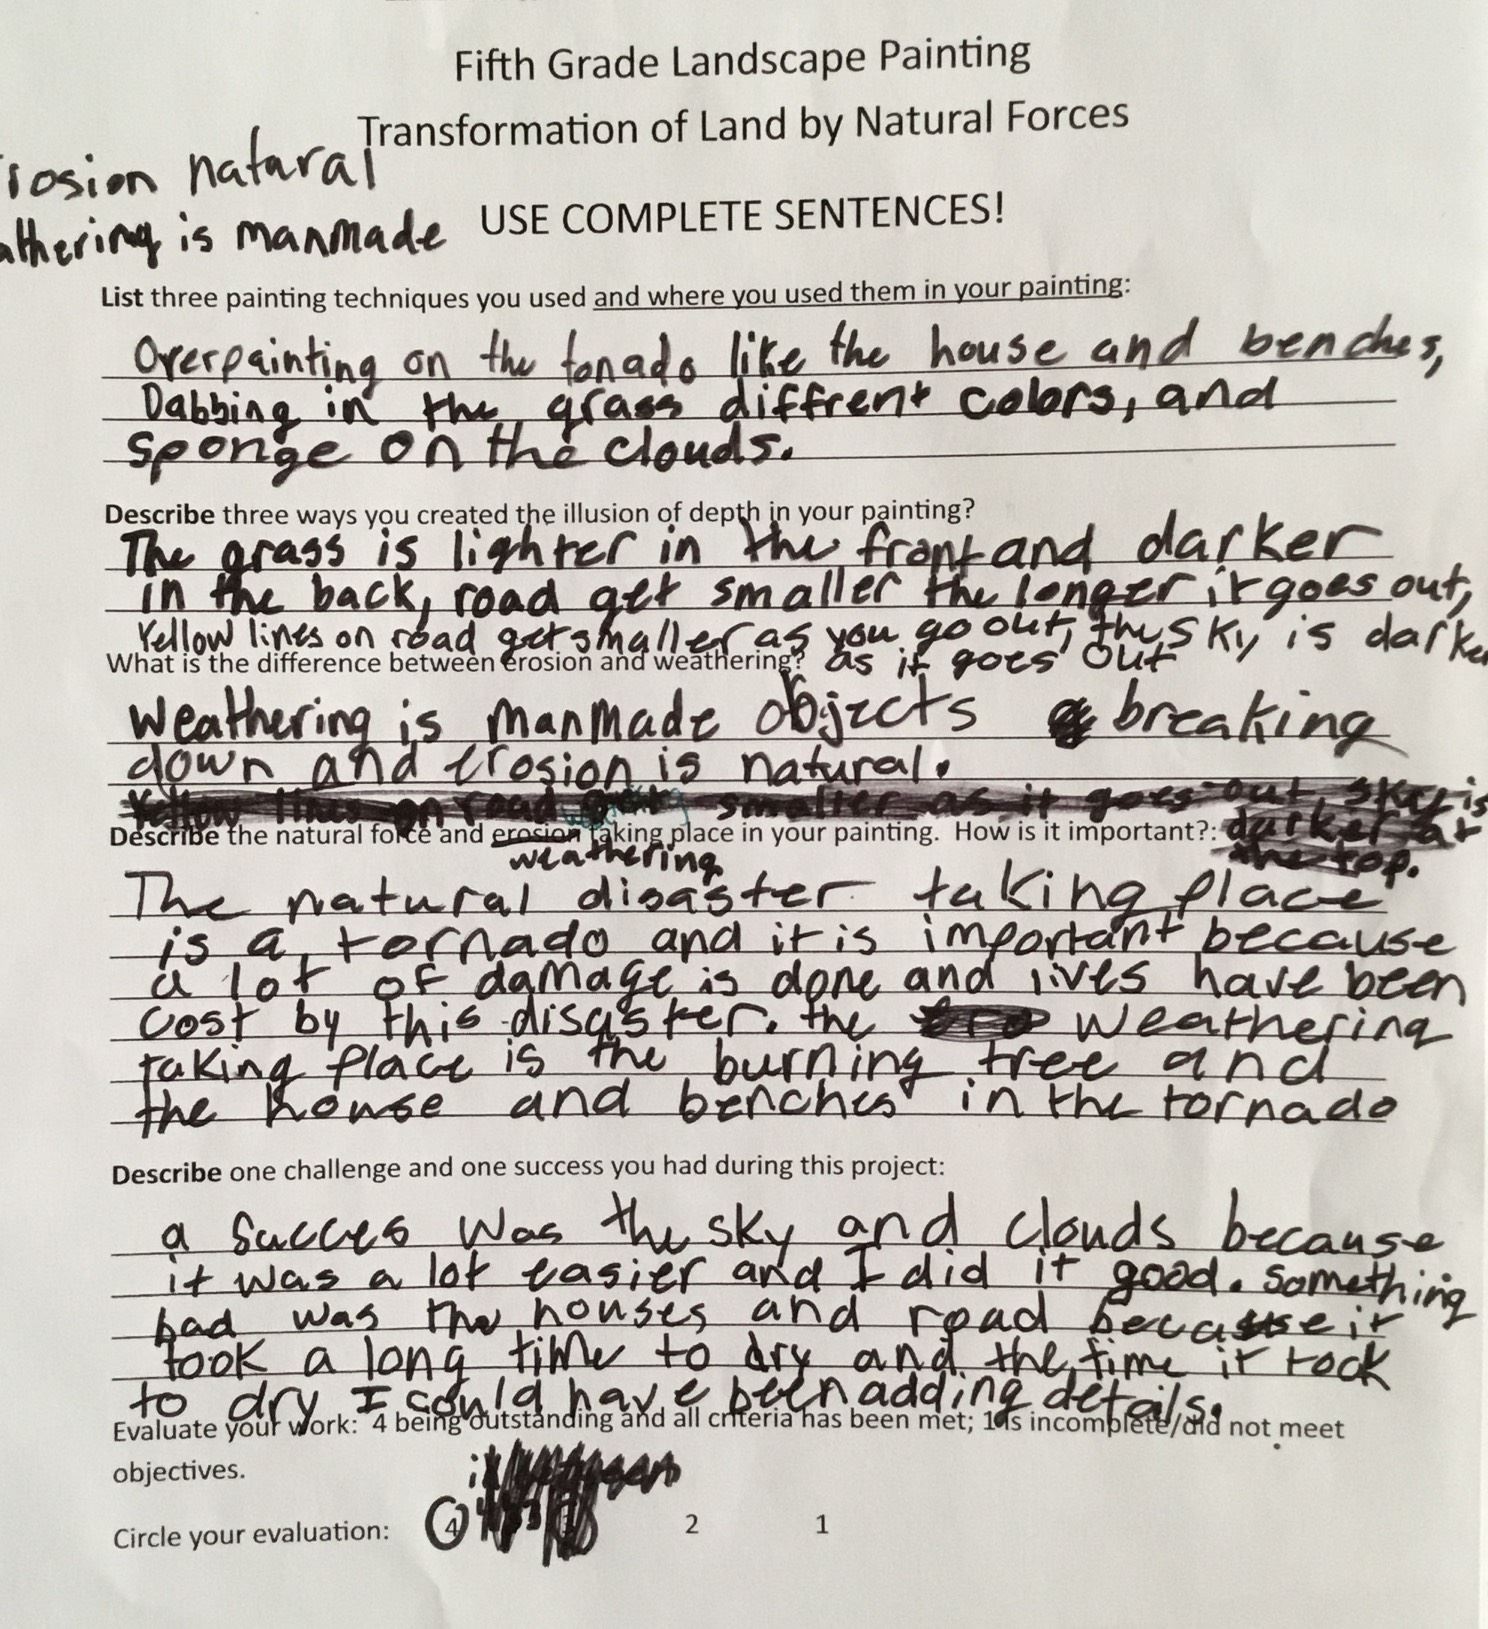 Fifth Grade Landscape Painting
Transformation of Land by Natural Forces
rosion natural
athering is manmade
USE COMPLETE SENTENCES!
List three painting techniques you used and where you used them in your painting:
Overpainting on the tonado like the house and benches,
Dabbing in the grass diffrent colors, and
sponge on the clouds.
Describe three ways you created the illusion of depth in your painting?
The grass is lighter in the front and darker
in the back, road get smaller the longer it goes out,
Yellow lines on road get smaller as you go out, the sky is darke
as it goes out
What is the difference between erosion and weathering?
Weathering is manmade objects breaking
down and erosion is natural.
Yellow lines on road get smaller as it goes out, sky is
darker at
the top.
Describe the natural force and erosion taking place in your painting. How is it important?:
weathering
The natural disaster taking place
is a tornado and it is important because
a lot of damage is done and lives have been
cost by this disaster. the weathering
taking place is the burning tree and
the house and benches in the tornado
Describe one challenge and one success you had during this project:
a succes was the sky and clouds because
it was a lot easier and I did it good. Something
bad was the houses and road because it
took a long time to dry and the time it took
to dry I could have been adding details.
Evaluate your work: 4 being outstanding and all criteria has been met; 1 is incomplete/did not meet
objectives.
Circle your evaluation: 4 2 1